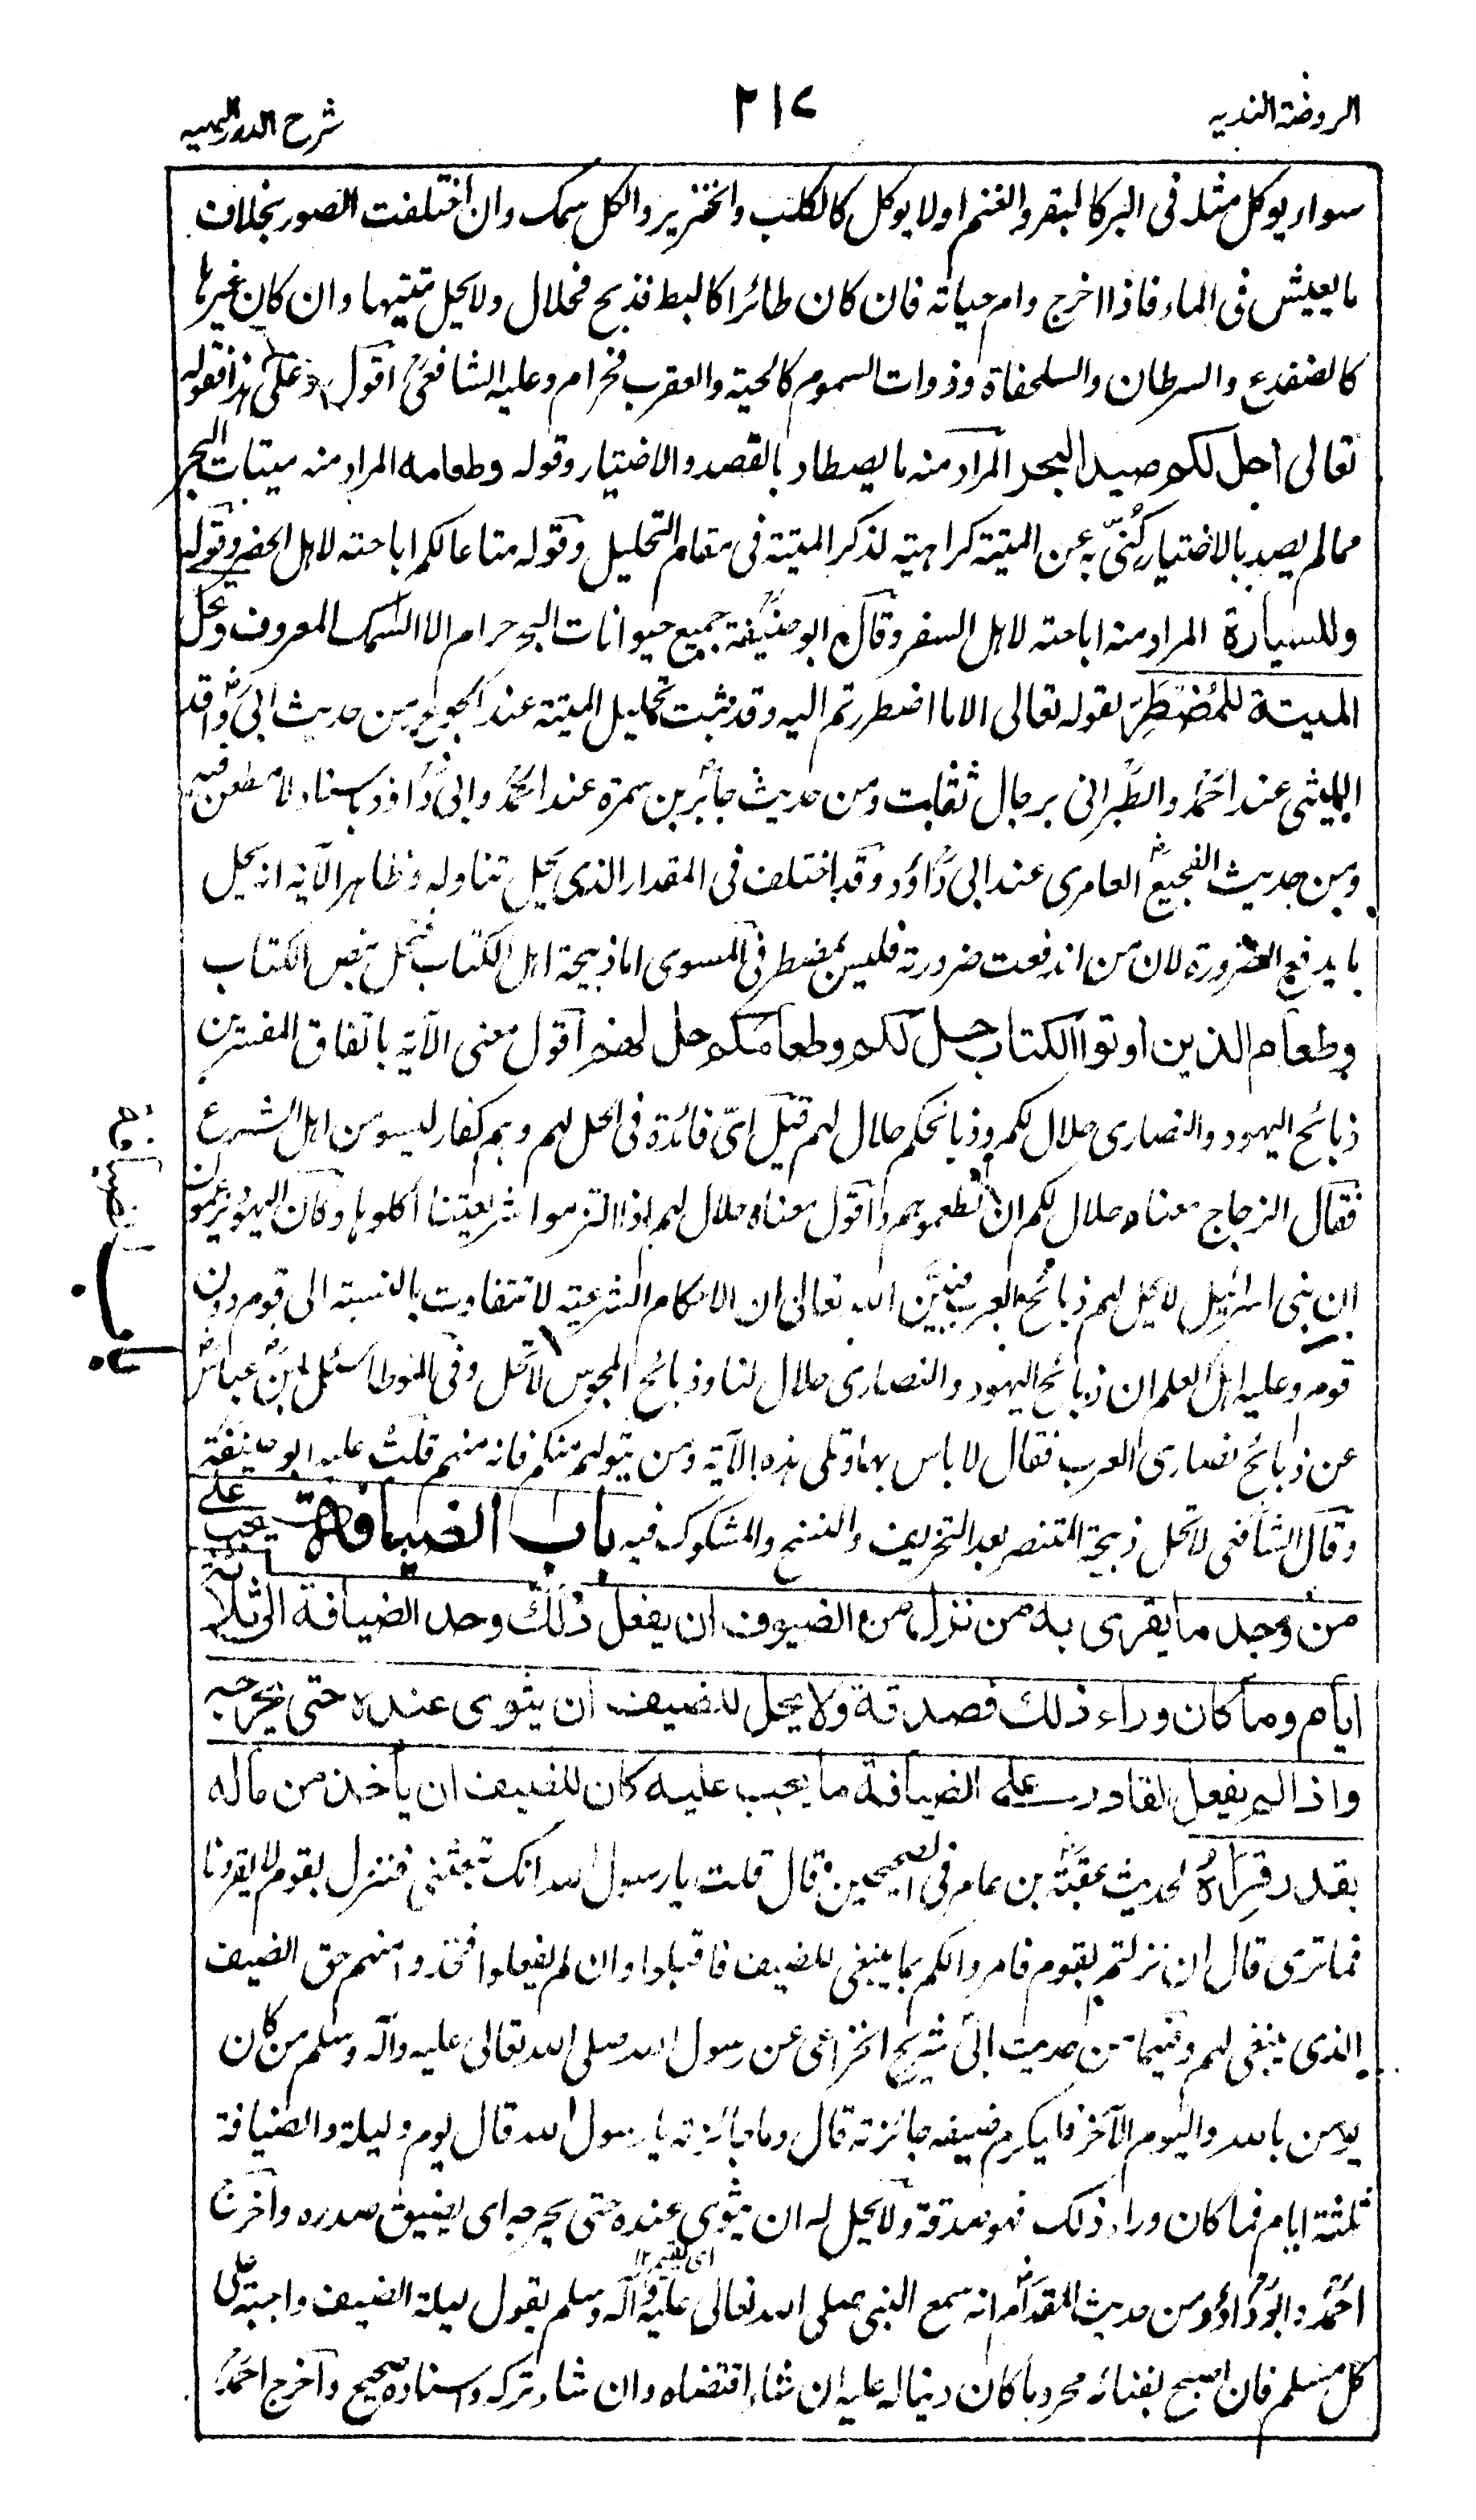 الروضة الندية
٢١٢
شرح الدرر البهية
سواء يوكل مثله في البر كالبقر والغنم اولا يوكل كالكلب والخنزير والكل سمك وان اختلفت الصور بخلاف
ما يعيش في الماء فاذا اخرج دام حياته فان كان طائرا كالبط فذبح فحلال ولا يحل ميتيها وان كان غيرها
كالضفدع والسرطان والسلحفاة وذوات السموم كالحية والعقرب فحرام وعليه الشافعي اقول وعلى هذا فقوله
تعالى احل لكم صيد البحر المراد منه ما يصطاد بالقصد والاختيار وقوله وطعامه المراد منه ميتات البحر
مما لم يصد بالاختيار كُنّي به عن الميتة كراهية لذكر الميتة في مقام التحليل وقوله متاعا لكم اباحته لاهل الحضر وقوله
وللسيارة المراد منه اباحته لاهل السفر وقال ابو حنيفة جميع حيوانات البحر حرام الا السمك المعروف وتحل
الميتة للمُضْطَرِ لقوله تعالى الا ما اضطررتم اليه وقد ثبت تحليل الميتة عند الجوع من حديث ابي واقد
الليثي عند احمد والطبراني برجال ثقات ومن حديث جابر بن سمرة عند احمد وابي داؤد باسناد لا مطعن فيه
ومن حديث الفجيع العامري عند ابي داؤد وقد اختلف في المقدار الذي يحل تناوله وظاهر الآية انه يحل
ما يدفع الضرورة لان من اندفعت ضرورته فليس بمضطر في المسوى اما ذبيحة اهل الكتاب فتحل بنص الكتاب
وطعام الذين اوتوا الكتاب حل لكم وطعامكم حل لهم اقول معنى الآية باتفاق المفسرين
ذبائح اليهود والنصارى حلال لكم وذبائحكم حلال لهم قيل ايّ فائدة في الحل لهم وهم كفار ليسو من اهل الشرع
فقال الزجاج معناه حلال لكم ان تطعموهم واقول معناه حلال لهم اذا التزموا شريعتنا اكلوها وكان اليهود يزعمون
ان بني اسرائيل لا يحل لهم ذبائح العرب فبيّن الله تعالى ان الاحكام الشرعية لا تتفاوت بالنسبة الى قوم دون
قوم وعليه اهل العلم ان ذبائح اليهود والنصارى حلال لنا وذبائح المجوس لا تحل وفي الموطا سئل ابن عباس
عن ذبائح نصارى العرب فقال لا باس بها وتلى هذه الآية ومن يتولهم منكم فانه منهم قلت عليه ابو حنيفة
وقال الشافعي لا تحل ذبيحة المتنصر بعد التحريف والنسخ والمشكوك فيه باب الضيافة يجب على
من وجد ما يقرى به من نزل من الضيوف ان يفعل ذلك وحد الضيافة الى ثلاثة
ايام وما كان وراء ذلك فصدقة ولا يحل للضيف ان يثوى عنده حتى يحرجه
واذا لم يفعل القادر على الضيافة ما يجب عليه كان للضيف ان يأخذ من ماله
بقدر قِراهُ لحديث عقبة بن عامر في الصحيحين قال قلت يا رسول الله انك تبعثني فننزل بقوم لا يقرونا
فما ترى قال ان نزلتم بقوم فامروا لكم بما ينبغي للضيف فاقبلوا وان لم يفعلوا فخذوا منهم حق الضيف
الذي ينبغي لهم وفيهما من حديث ابي شريح الخزاعي عن رسول الله صلى الله تعالى عليه وآله وسلم من كان
يومن بالله واليوم الآخر فليكرم ضيفه جائزته قال وما جائزته يا رسول الله قال يوم وليلة والضيافة
ثلثة ايام فما كان وراء ذلك فهو صدقة ولا يحل له ان يثوي عنده حتى يحرجه اى يضيق صدره واخرج
اى يقيم ١٢
احمد وابو داؤد من حديث المقدام انه سمع النبي صلى الله تعالى عليه وآله وسلم يقول ليلة الضيف واجبة على
كل مسلم فان اصبح بفنائه محروما كان دينا له عليه ان شاء اقتضاه وان شاء تركه واسناده صحيح واخرج احمد
باب الضيافة